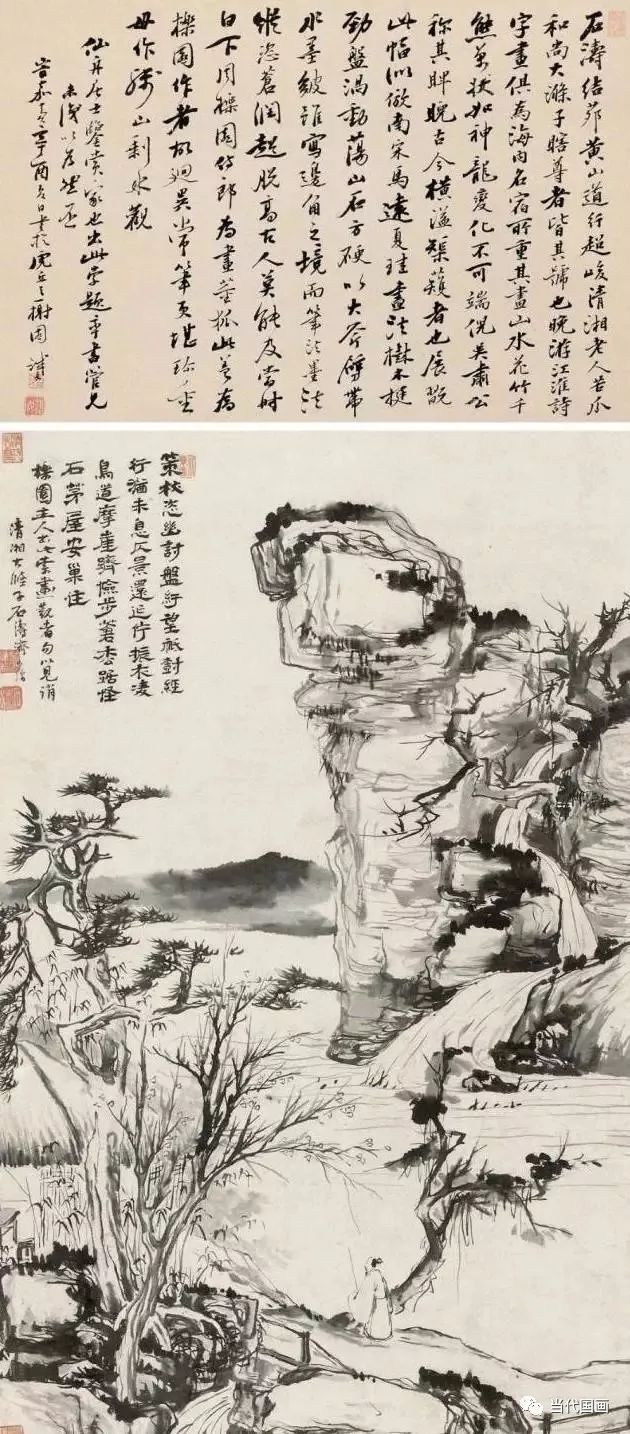 石濤結茆黃山道行超峻清湘老人苦瓜
和尚大滌子瞎尊者皆其號也晚游江淮詩
字畫俱為海內名宿所重其畫山水花竹千
態萬狀如神龍變化不可端倪吳肅公
稱其睥睨古今橫溢榘矱者也展翫
此幅似倣南宋馬遠夏珪畫法樹木挺
勁盤渦動蕩山石方硬以大斧劈帶
水墨皴雖寫邊角之境而筆法墨法
縱恣蒼潤超脫高古人莫能及當時
白下周櫟園侍郎為畫董狐此蓋為
櫟園作者故迥異常筆更堪珍重
毋作殘山剩水觀
仙舟居士鑒賞家也出此索題率書管見
未識以為然否
嘉慶辛酉冬日書於虎丘
策杖恣幽討盤紆望祇對經
行猶未息仄景還延佇振衣凌
鳥道摩崖躋險步著 踞怪
石茅屋安巢住
櫟園主人 畫觀者句以見誚
清湘大滌子石濤濟
当代国画